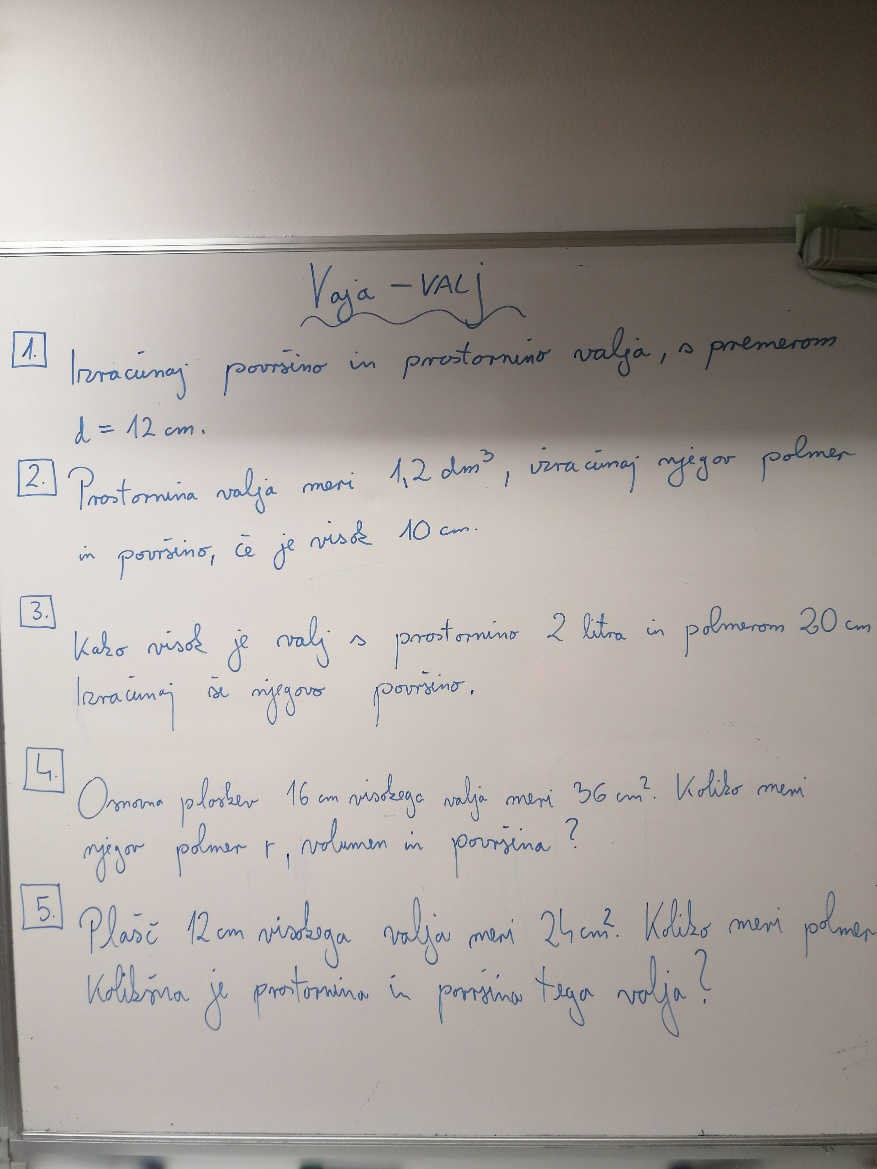 Vaja - VALJ
1. Izračunaj površino in prostornino valja, s premerom
d = 12 cm.
2. Prostornina valja meri 1,2 dm³, izračunaj njegov polmer
in površino, če je visok 10 cm.
3. Kako visok je valj s prostornino 2 litra in polmerom 20 cm
Izračunaj še njegovo površino.
4. Osnovna ploskev 16 cm visokega valja meri 36 cm². Koliko meri
njegov polmer r, volumen in površina?
5. Plašč 12 cm visokega valja meri 24 cm². Koliko meri polmer
Kolikšna je prostornina in površina tega valja?